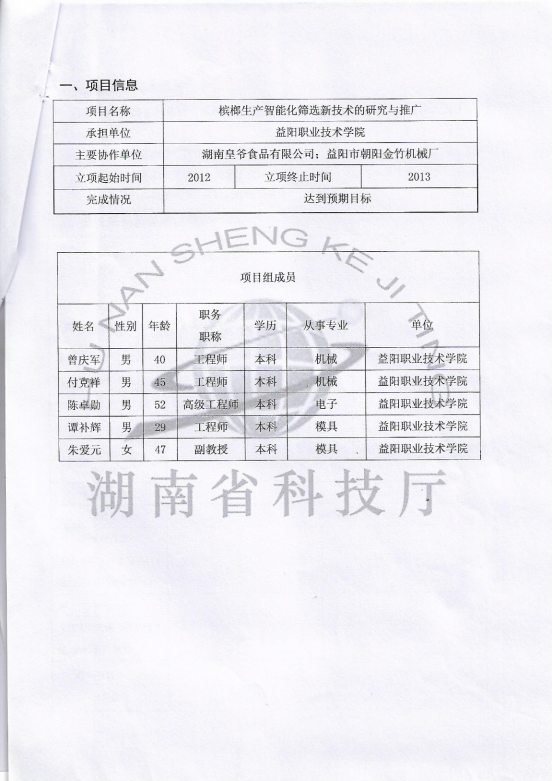 一、项目信息
项目名称 槟榔生产智能化筛选新技术的研究与推广
承担单位 益阳职业技术学院
主要协作单位 湖南皇爷食品有限公司；益阳市朝阳金竹机械厂
立项起始时间 2012 立项终止时间 2013
完成情况 达到预期目标
HUNAN SHENG KE JI TING
项目组成员
姓名 性别 年龄 职务职称 学历 从事专业 单位
曾庆军 男 40 工程师 本科 机械 益阳职业技术学院
付克祥 男 45 工程师 本科 机械 益阳职业技术学院
陈卓勋 男 52 高级工程师 本科 电子 益阳职业技术学院
谭补辉 男 29 工程师 本科 模具 益阳职业技术学院
朱爱元 女 47 副教授 本科 模具 益阳职业技术学院
湖南省科技厅